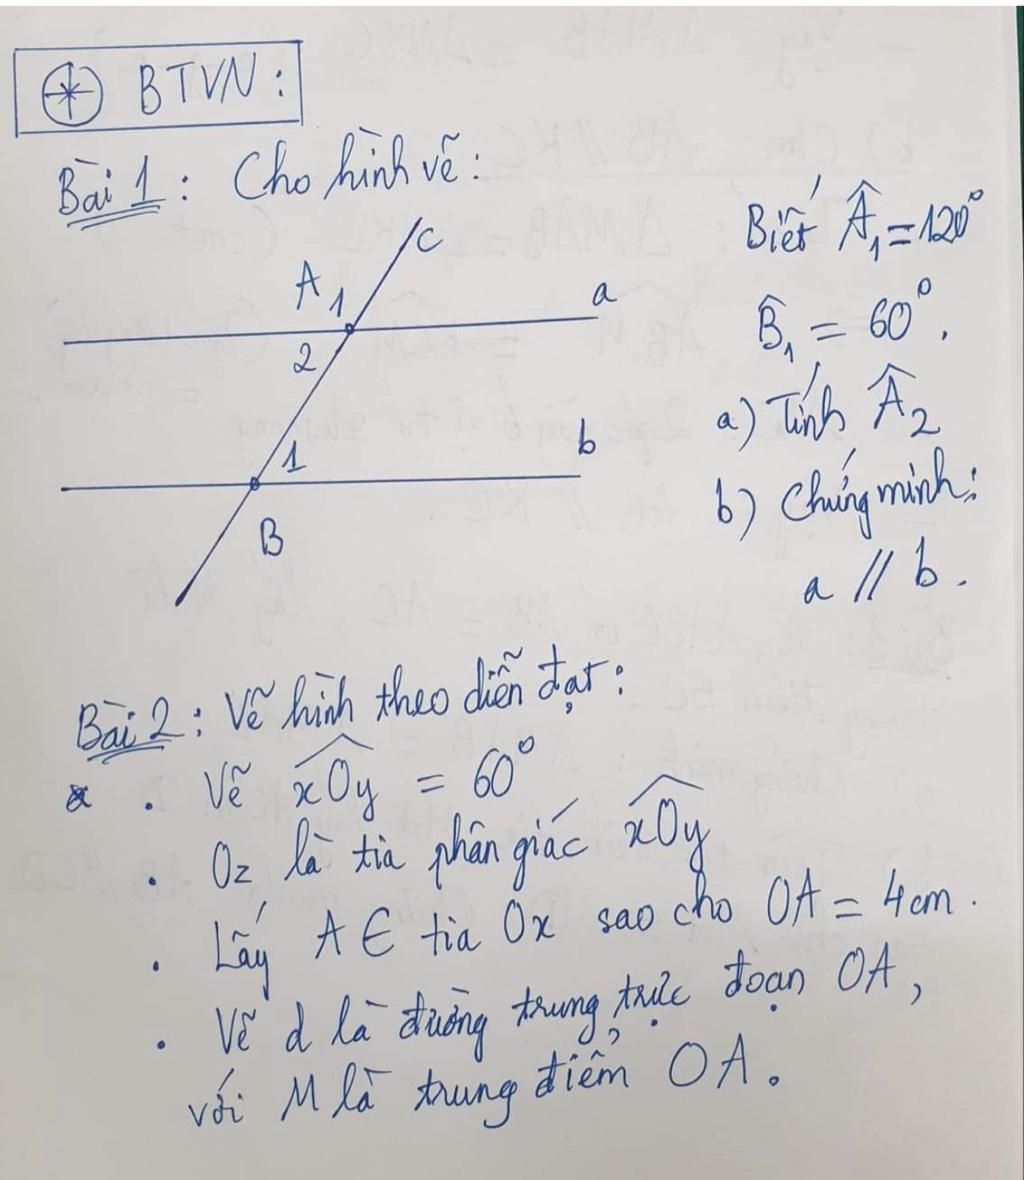 ⊛ BTVN:
Bài 1: Cho hình vẽ:
Biết Â₁ = 120°
B̂₁ = 60°.
a) Tính Â₂
b) Chứng minh:
a // b.
c
A 1
a
2
1
b
B
Bài 2: Vẽ hình theo diễn đạt:
. Vẽ xOy = 60°
. Oz là tia phân giác xOy
. Lấy A ∈ tia Ox sao cho OA = 4cm.
. Vẽ d là đường trung trực đoạn OA,
với M là trung điểm OA.